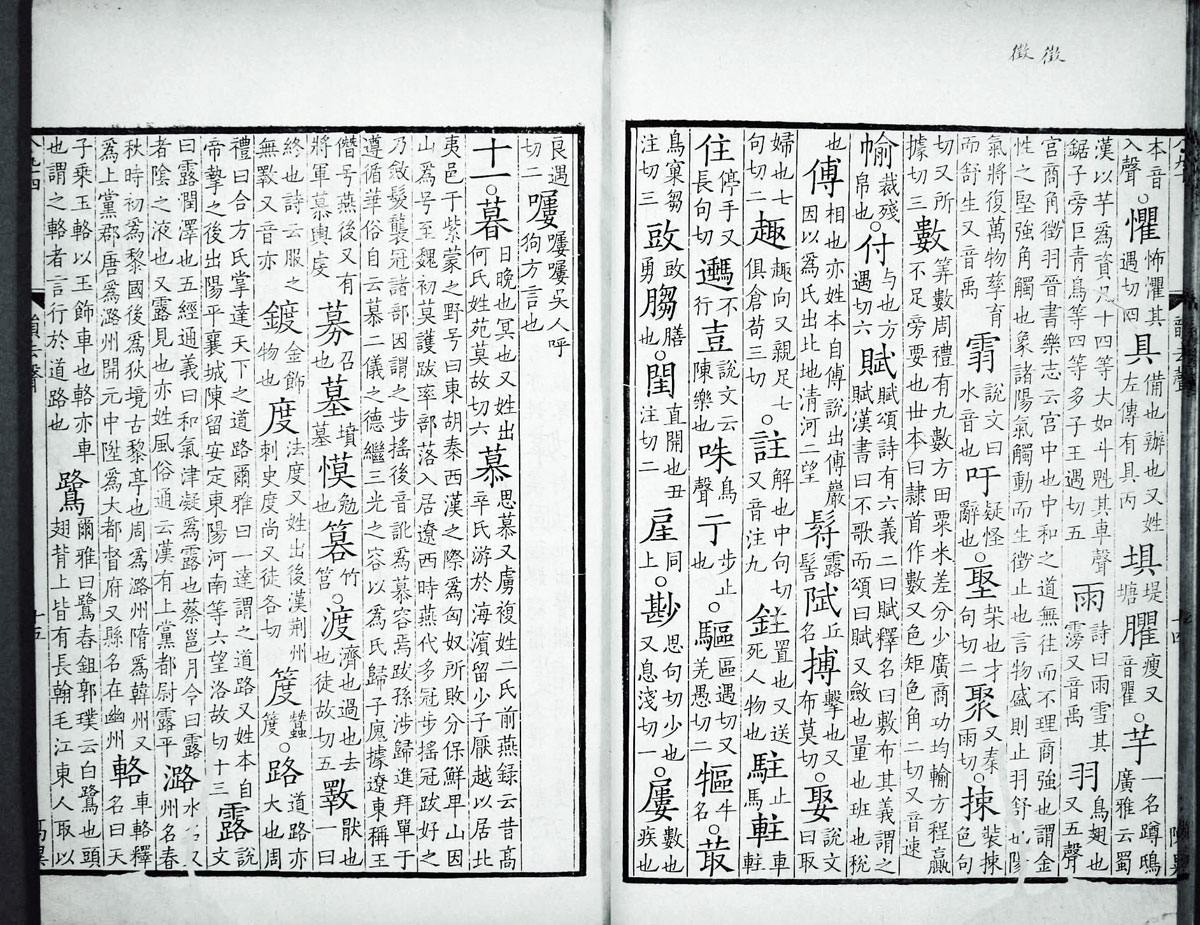 徵 徵
本音入聲。懼怖懼其遇切四具備也辦也又姓左傳有具丙埧堤塘臞瘦又音瞿。芋一名蹲鴟廣雅云蜀
漢以芋爲資凡十四等大如斗魁其車聲鋸子旁巨青鳥等四等多子王遇切五雨詩曰雨雪其雱又音禹羽鳥翅也又五聲
宮商角徵羽晉書樂志云宮中也中和之道無往而不理商強也謂金性之堅強角觸也象諸陽氣觸動而生徵止也言物盛則止羽舒也陽
氣將復萬物孳育而舒生又音禹䨞說文曰水音也吁疑怪辭也。埾垜也才句切二聚又秦雨切。捒裝捒色句
切又所據切三數筭數周禮有九數方田粟米差分少廣商功均輸方程贏不足旁要也世本曰隸首作數又色矩色角二切又音速
㡏裁殘帛也。付與也方遇切六賦賦頌詩有六義二曰賦釋名曰敷布其義謂之賦漢書曰不歌而頌曰賦又斂也量也班也稅
也傅相也亦姓本自傅說出傅巖因以爲氏出北地清河二望䯽露髻丘搏擊也又布莫切。娶說文曰取
婦也七句切二趣趣向又親足七俱倉苟三切。註解也中句切又音注九鉒置也又送死人物也駐止馬軴車軴
住停手又長句切遱不行壴說文云陳樂也咮鳥聲亍步止也。驅區遇切又羌愚切二㸖牛名。菆
鳥窠芻注切三勇膳也。直開也丑注切二同上。尠思句切少也又息淺切一屢數也疾也
良遇切二吳人呼狗方言也
十一。暮日晚也冥也又姓出何氏姓苑莫故切六慕思慕又虜複姓二氏前燕録云昔高辛氏游於海濱留少子厭越以居北
夷邑于紫蒙之野号曰東胡秦西漢之際爲匈奴所敗分保鮮卑山因山爲号至魏初莫護跋率部落入居遼西時燕代多冠步搖冠跋好之
乃斂髮襲冠諸部因謂之步搖後音訛爲慕容焉跋孫涉歸進拜單于遵循華俗自云慕二儀之德繼三光之容以爲氏歸子廆據遼東稱王
僭号燕後又有將軍慕輿䖍募召也墓墳墓慔勉也竹筥。渡濟也過也去也徒故切五斁猒也一曰
終也詩云服之無斁又音亦鍍金飾物也度法度又姓出後漢荆州刺史度尚又徒各切。路道路亦大也周
禮曰合方氏掌達天下之道路爾雅曰一達謂之道路又姓本自帝摯之後出陽平襄城陳留安定東陽河南等六望洛故切十三露說文
曰露潤澤也五經通義曰和氣津凝爲露也蔡邕月令曰露者陰之液也又露見也亦姓風俗通云漢有上黨都尉露平潞水名州名春
秋時初爲黎國後爲狄境古黎亭也周爲潞州隋爲韓州又爲上黨郡唐爲潞州開元中陞爲大都督府又縣名在幽州輅車輅釋名曰天
子乘玉輅以玉飾車也輅亦車也謂之輅者言行於道路也鷺爾雅曰鷺舂鉏郭璞云白鷺也頭翅背上皆有長翰毛江東人取以